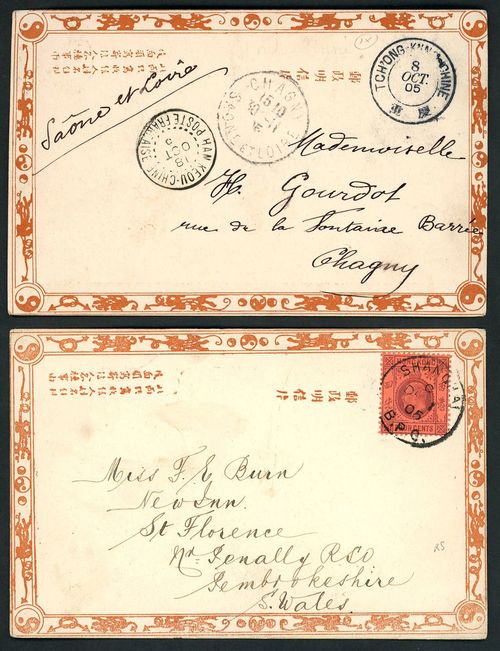 郵政明信片
Saône et Loire
TCH'ONG-K'
CHINE
8
OCT.
05
慶重
CHAGNY
SAONE-ET-LOIRE
HAN-KEOU-CHINE
POSTE FRANÇAISE
18
OCT
05
Mademoiselle
H. Gourdot
rue de la Fontaine Barrée
Chagny
郵政明信片
HONG KONG
FOUR CENTS
SHANGHAI
05
B.P.O.
Miss F. E Burn
New Inn.
St Florence
Nr Penally RSO
Pembrokeshire
S. Wales.
RS